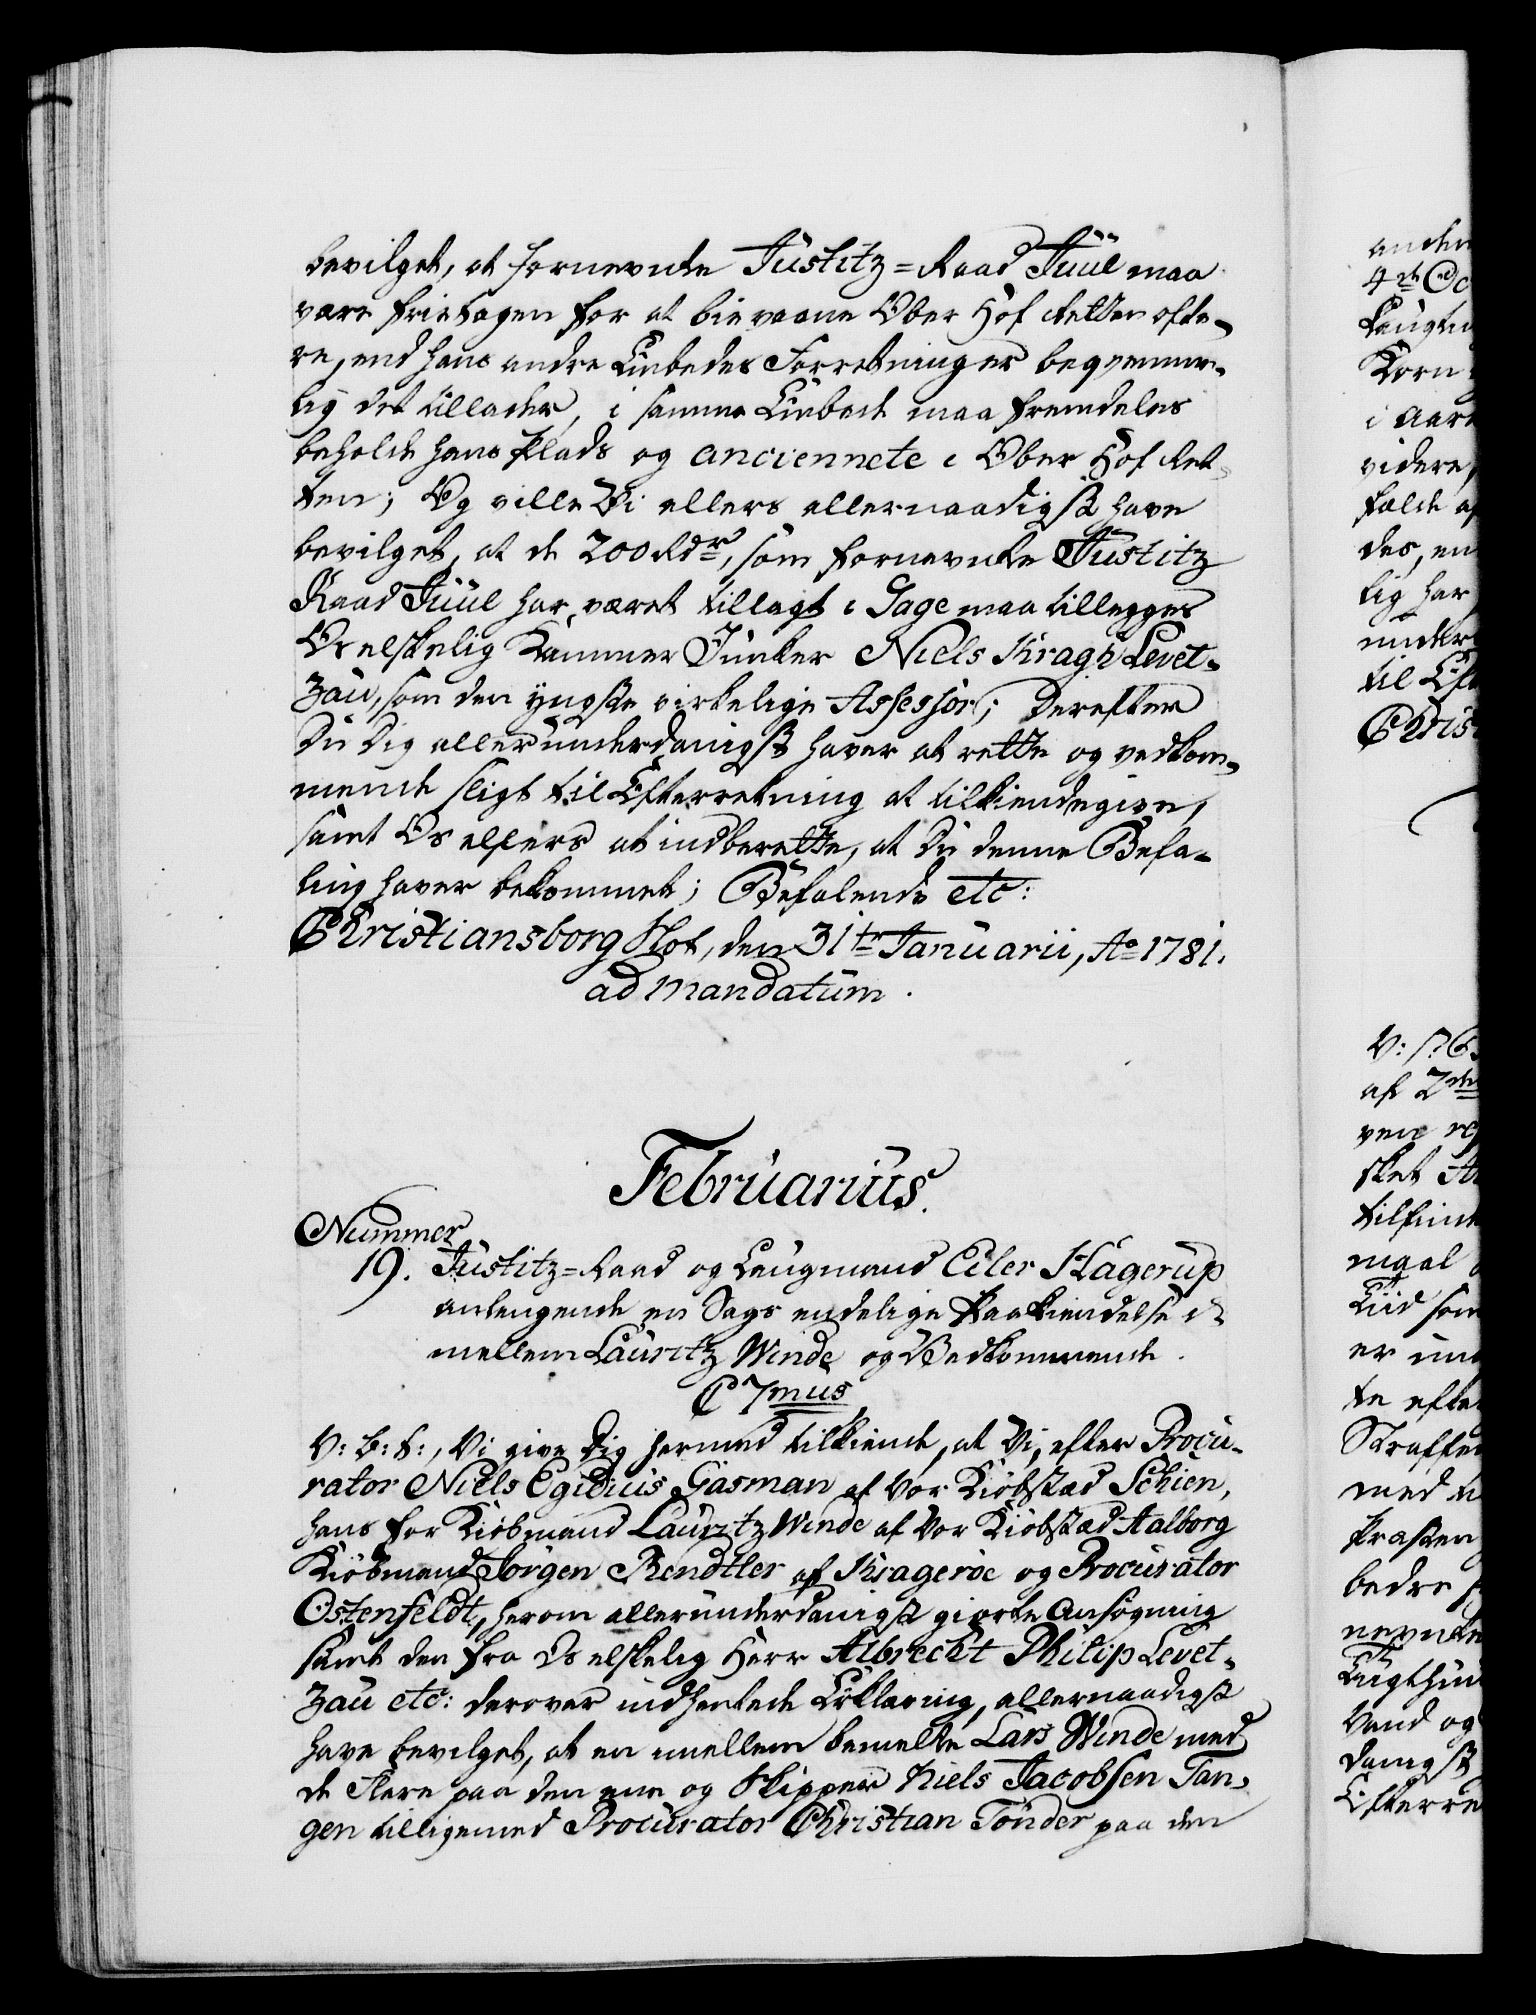 bevilget, at fornevnte Justitz=Raad Juul maa
være fritagen for at bievaane Ober Hof Retten ofte-
re, end hans andre Embedes Forretninger beqvemme-
lig det tillader, i samme Embede maa fremdeles
beholde hans Plads og anciennete i Ober Hof Ret-
ten; Og ville Vi ellers allernaadigst have
bevilget, at de 200 Rdr, som fornevnte Justitz
Raad Juul har været tillagt i Gage maa tillegges
Os elskelig Kammer Junker Niels Kragh Levet-
zau, som den yngste virkelige Assessor; Derefter
Du Dig allerunderdanigst haver at rette og vedkom-
mende sligt til Efterretning at tilkiendegive,
samt Os ellers at indberette, at Du denne Befa-
ling haver bekommet; Befalende etc:
Christiansborg Slot, den 31te Januarii, Ao 1781.
ad mandatum.
Februarius.
Nummer
19. Justitz=Raad og Laugmand Eiler Hagerup
anlangende en Sags endelige Paakiendelse
mellem Lauritz Winde og Vedkommende.
C 7mus
V: B: T:, Vi give Dig hermed tilkiende, at Vi, efter Procu-
rator Niels Egidius Gasman af Vor Kiøbstad Schien,
hans for Kiøbmand Lauritz Winde af Vor Kiøbstad Aalborg
Kiøbmand Jørgen Rendtler af Kragerøe og Procurator
Ostenfeldt, herom allerunderdanigst giorte Ansøgning
samt den fra Os elskelig Herr Albrecht Philip Levet-
zau etc: derover indhentede Erklæring, allernaadigst
have bevilget, at en imellem bemelte Lars Winde med
de flere paa den ene og Skipper Niels Jacobsen Tan-
gen tilligemed Procurator Christian Tønder paa den